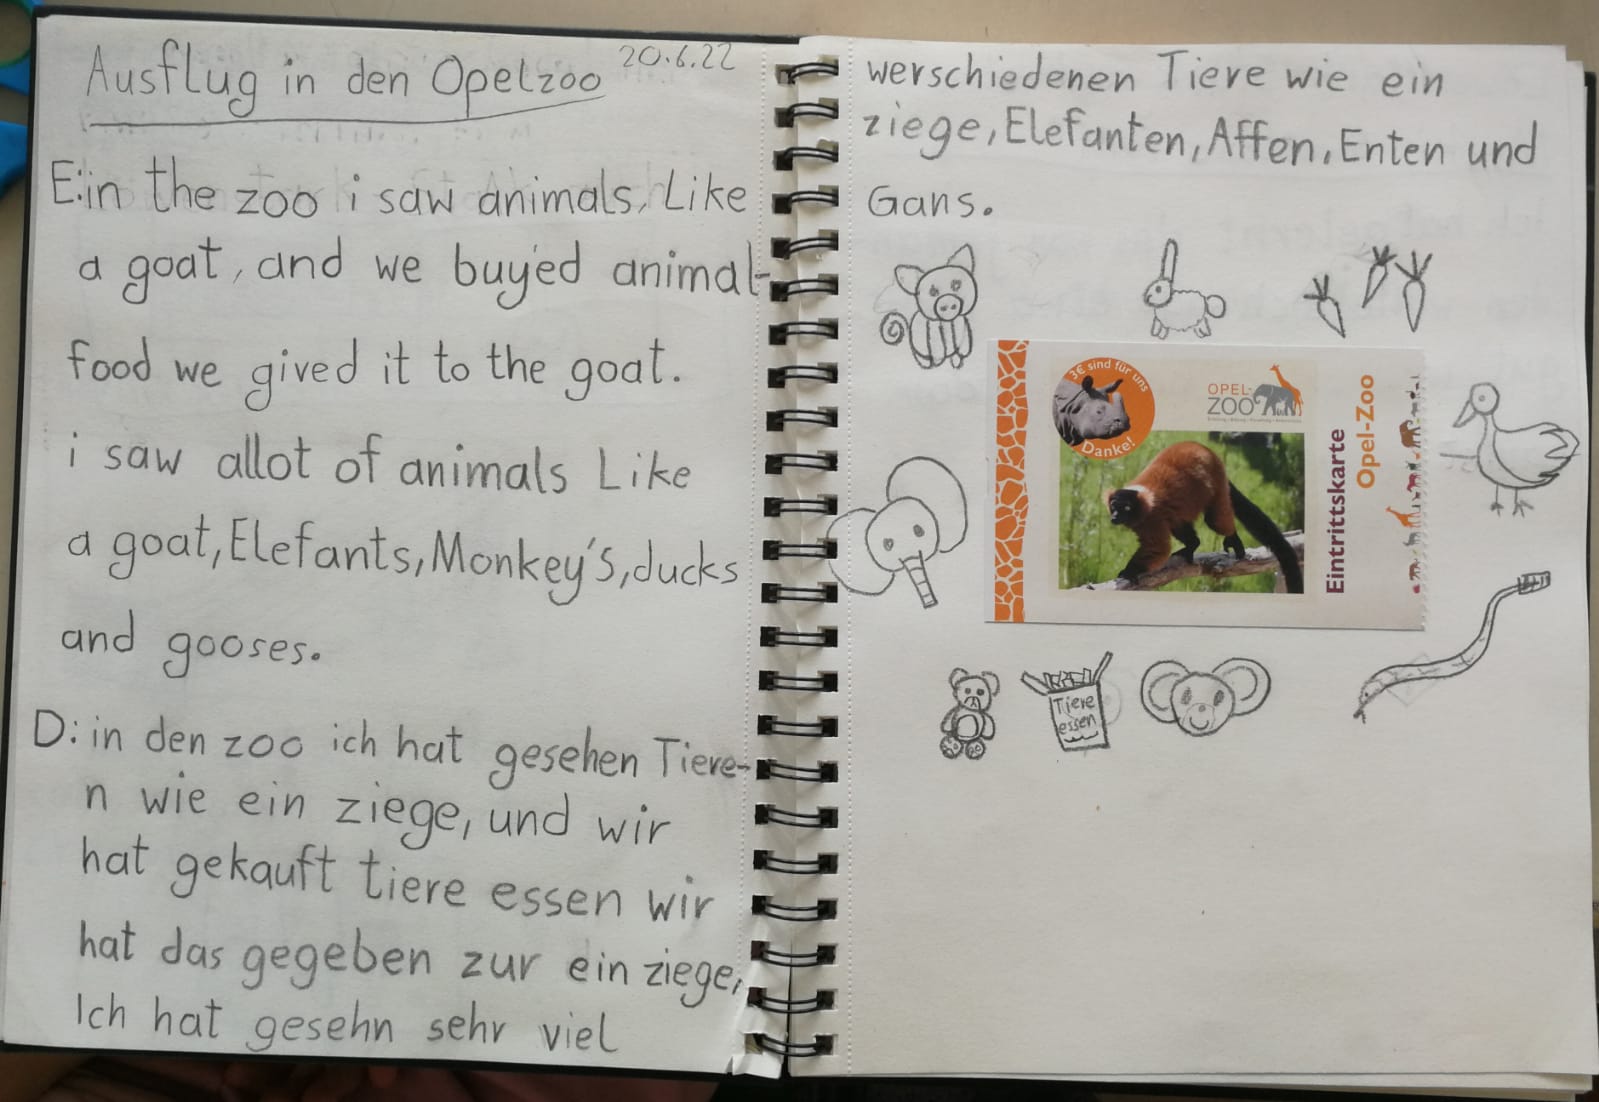 Ausflug in den Opelzoo 20.6.22
E:in the zoo i saw animals, Like
a goat, and we buy'ed animal-
food we gived it to the goat.
i saw allot of animals Like
a goat, Elefants, Monkey's, ducks
and gooses.
D: in den zoo ich hat gesehen Tiere-
n wie ein ziege, und wir
hat gekauft tiere essen wir
hat das gegeben zur ein ziege,
Ich hat gesehn sehr viel
werschiedenen Tiere wie ein
ziege, Elefanten, Affen, Enten und
Gans.
3€ sind für uns
Danke!
OPEL-
ZOO
Eintrittskarte
Opel-Zoo
Tiere
essen